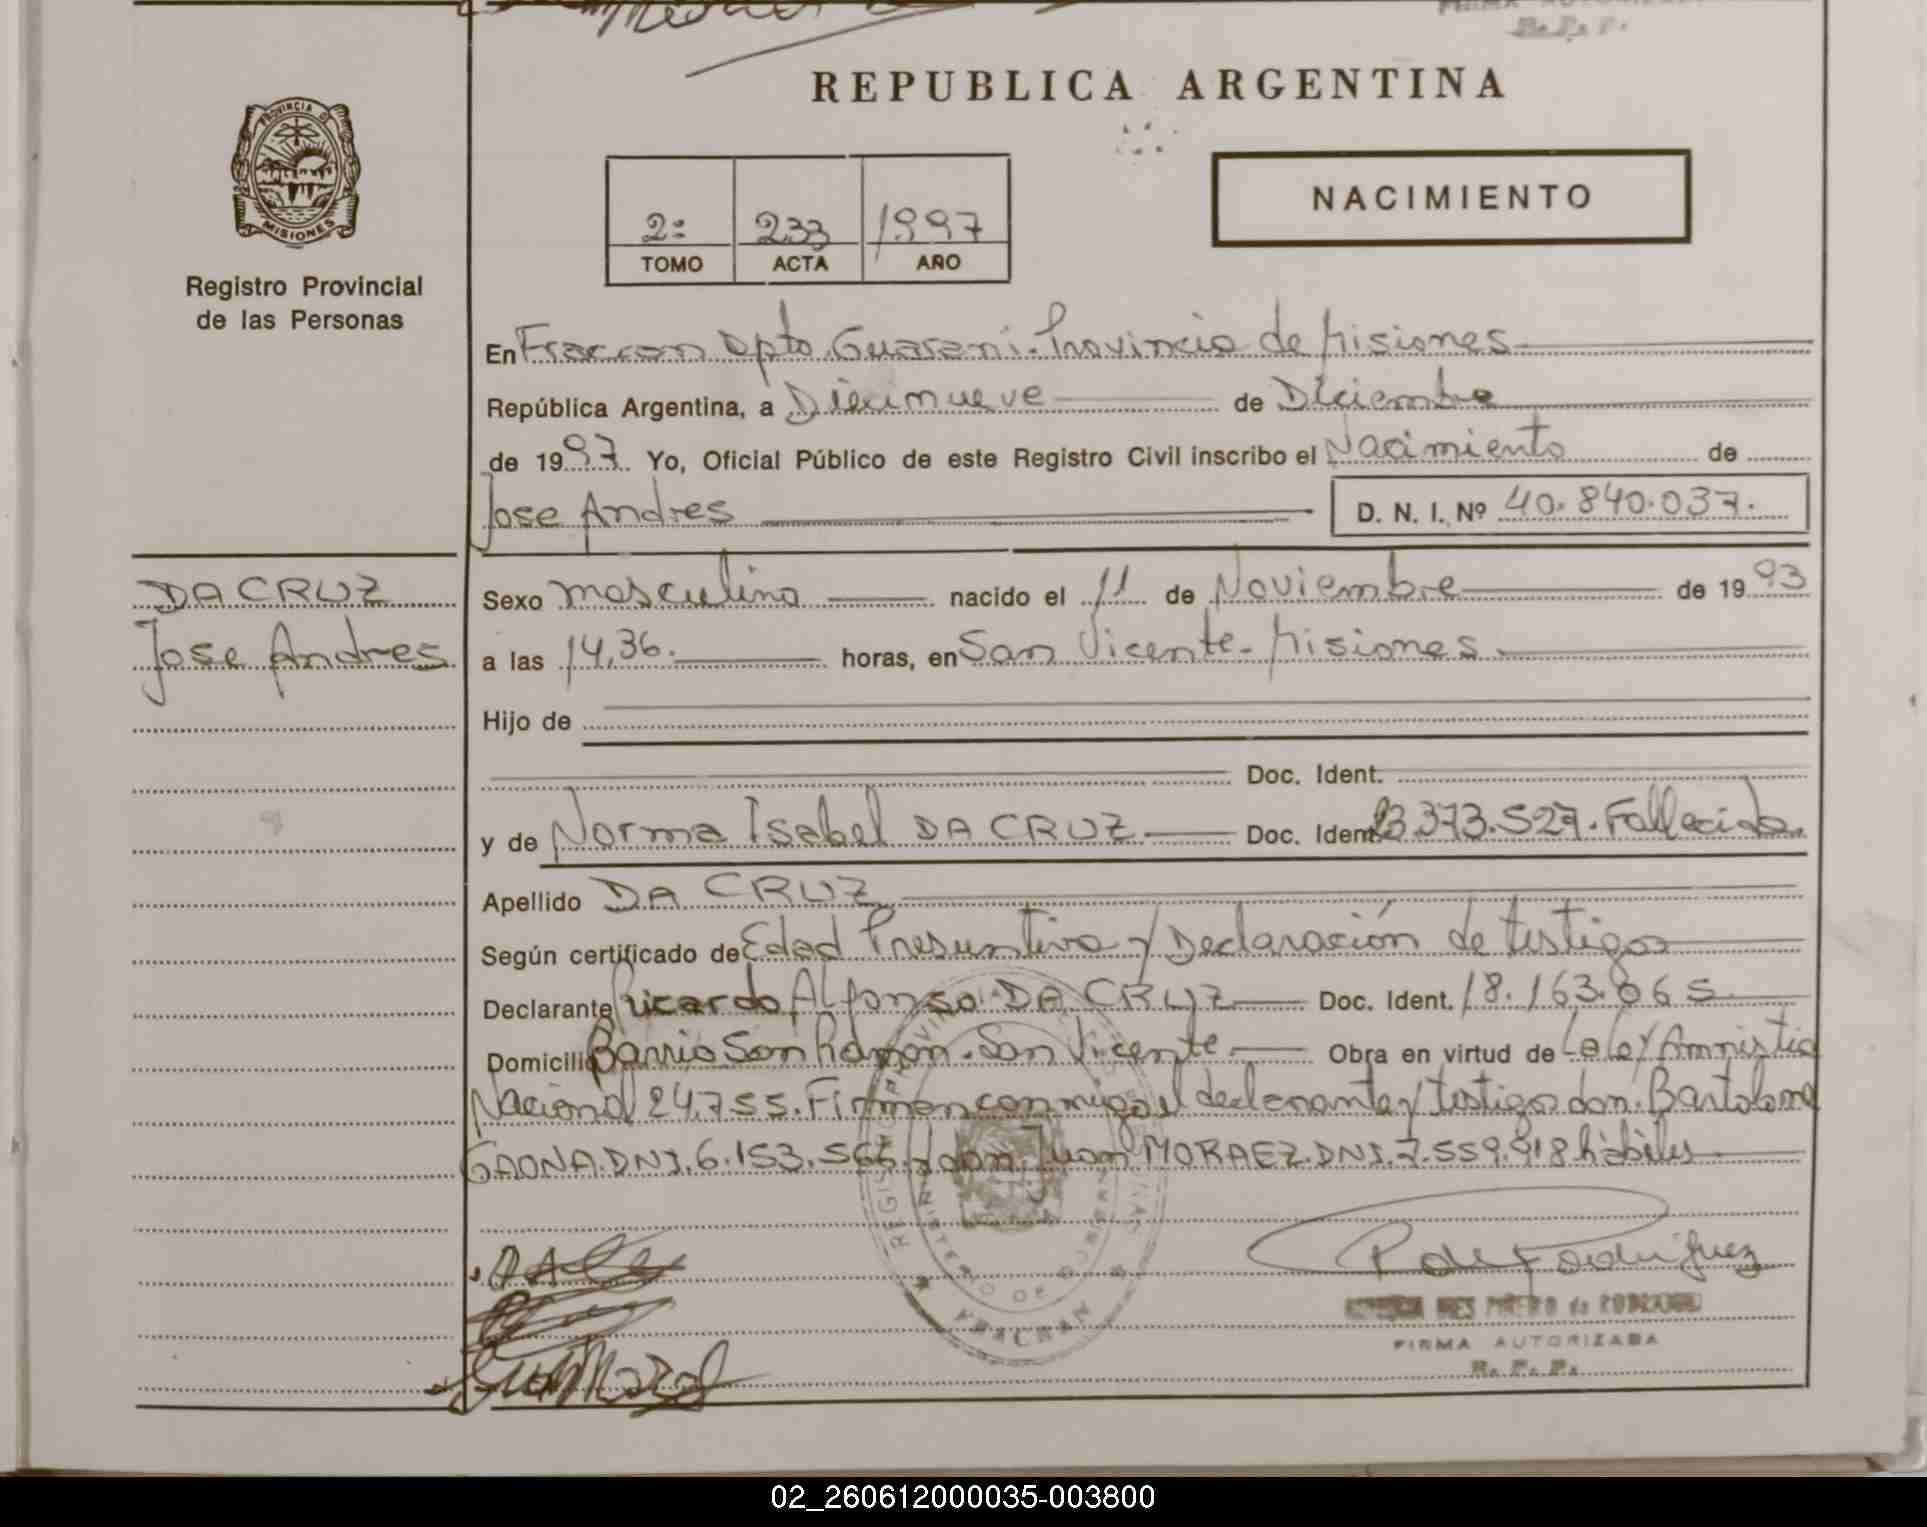 FIRMA AUTORIZADA
R. P. P.
PROVINCIA DE
MISIONES
Registro Provincial
de las Personas
REPUBLICA ARGENTINA
NACIMIENTO
2º 233 1997
TOMO ACTA AÑO
En Fracran Dpto. Guarani. Provincia de Misiones
República Argentina, a Diecinueve de Diciembre
de 1997. Yo, Oficial Público de este Registro Civil inscribo el Nacimiento de
Jose Andres D. N. I. Nº 40.840.037.
DA CRUZ
Jose Andres
Sexo masculino nacido el 11 de Noviembre de 1993
a las 14,36. horas, en San Vicente - Misiones
Hijo de
Doc. Ident.
y de Norma Isabel DA CRUZ Doc. Ident. 23.373.527. Fallecida.
Apellido DA CRUZ
Según certificado de Edad Presuntiva y Declaración de testigos
Declarante Ricardo Alfonso DA CRUZ Doc. Ident. 18.163.065
Domicilio Barrio San Ramon. San Vicente Obra en virtud de La Ley Amnistia
Nacional 24.755. Firman conmigo el declarante y testigos don. Bartolome
GAONA. DNI. 6.153.566 y don. Juan MORAEZ. DNI. 7.559.918 hábiles
MINISTERIO DE GOBIERNO
FRACRAN
Rodriguez
PIÑERO de RODRIGUEZ
FIRMA AUTORIZADA
R. P. P.
02_260612000035-003800